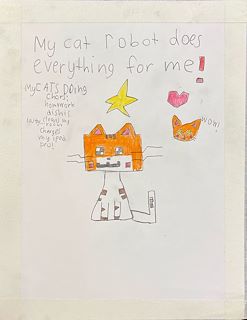 My cat robot does
everything for me!
MyCATS DOING
chors:
homework
dishis
room
charges
my ipad
pro!
WOW!